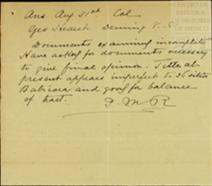 Ans. Aug 31st Cal
Geo Hearst Deming
Documents examined incomplete
Have asked for documents necessary
to give final opinion. Title at
present appears imperfect to 26 sitios
Babicora and good for balance
of tract.